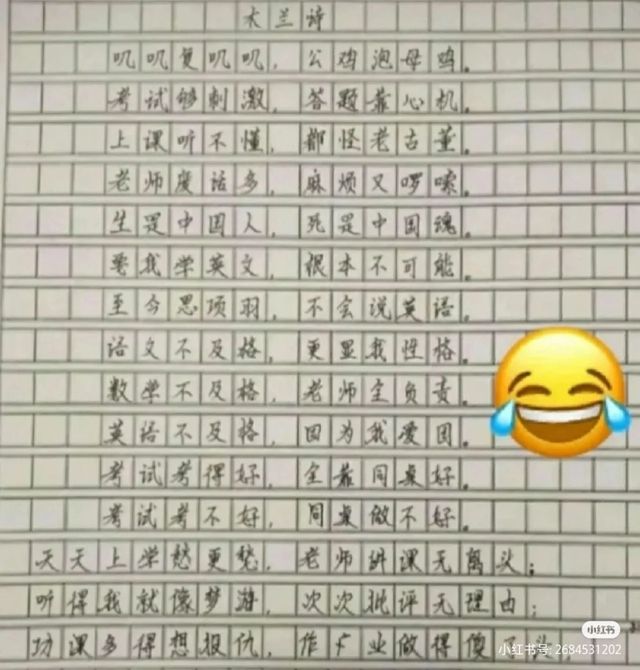 木兰诗
叽叽复叽叽，公鸡泡母鸡。
考试够刺激，答题靠心机。
上课听不懂，都怪老古董。
老师废话多，麻烦又啰嗦。
生是中国人，死是中国魂。
要我学英文，根本不可能。
至今思项羽，不会说英语。
语文不及格，更显我性格。
数学不及格，老师全负责。
英语不及格，因为我爱国。
考试考得好，全靠同桌好。
考试考不好，同桌做不好。
天天上学愁更愁，老师讲课无离头；
听得我就像梦游，次次批评无理由；
功课多得想报仇，作业做得傻
小红书
小红书号：2684531202